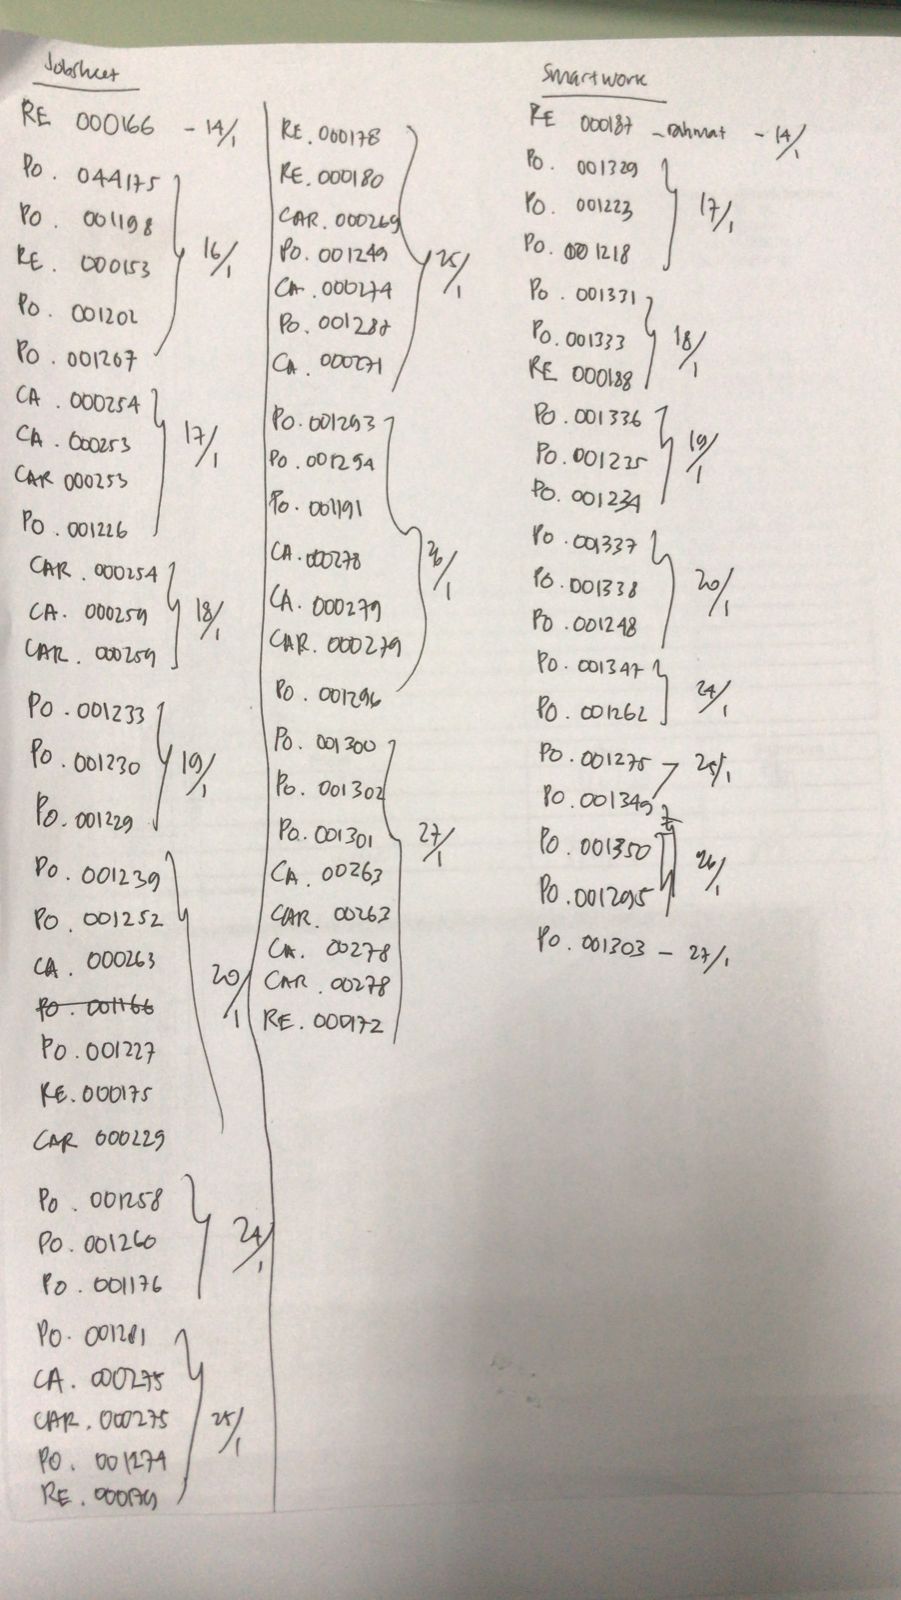 Jobsheet
RE 000166 - 14/1
Po. 044175
Po. 001198
RE. 000153
16/1
Po. 001202
Po. 001267
CA. 000254
CA. 000253
17/1
CAR 000253
Po. 001226
CAR. 000254
CA. 000259
18/1
CAR. 000259
Po. 001233
Po. 001230
19/1
Po. 001229
Po. 001239
Po. 001252
CA. 000263
20/1
Po. 001166
Po. 001227
RE. 000175
CAR 000229
Po. 001258
Po. 001260
24/1
Po. 001176
Po. 001281
CA. 000275
CAR. 000275
25/1
Po. 001274
RE.
RE. 000178
RE. 000180
CAR. 000269
Po. 001249
25/1
CA. 000274
Po. 001287
CA. 000271
Po. 001293
Po. 001294
Po. 001191
CA. 000278
26/1
CA. 000279
CAR. 000279
Po. 001296
Po. 001300
Po. 001302
Po. 001301
27/1
CA. 00263
CAR. 00263
CA. 00278
CAR. 00278
RE. 000172
Smartwork
RE 000187 - rahmat - 14/1
Po. 001329
Po. 001223
17/1
Po. 001218
Po. 001331
Po. 001333
18/1
RE 000188
Po. 001336
Po. 001235
19/1
Po. 001234
Po. 001337
Po. 001338
20/1
Po. 001248
Po. 001347
24/1
Po. 001262
Po. 001275
25/1
Po. 001349
Po. 001350
26/1
Po. 001295
Po. 001303 - 27/1